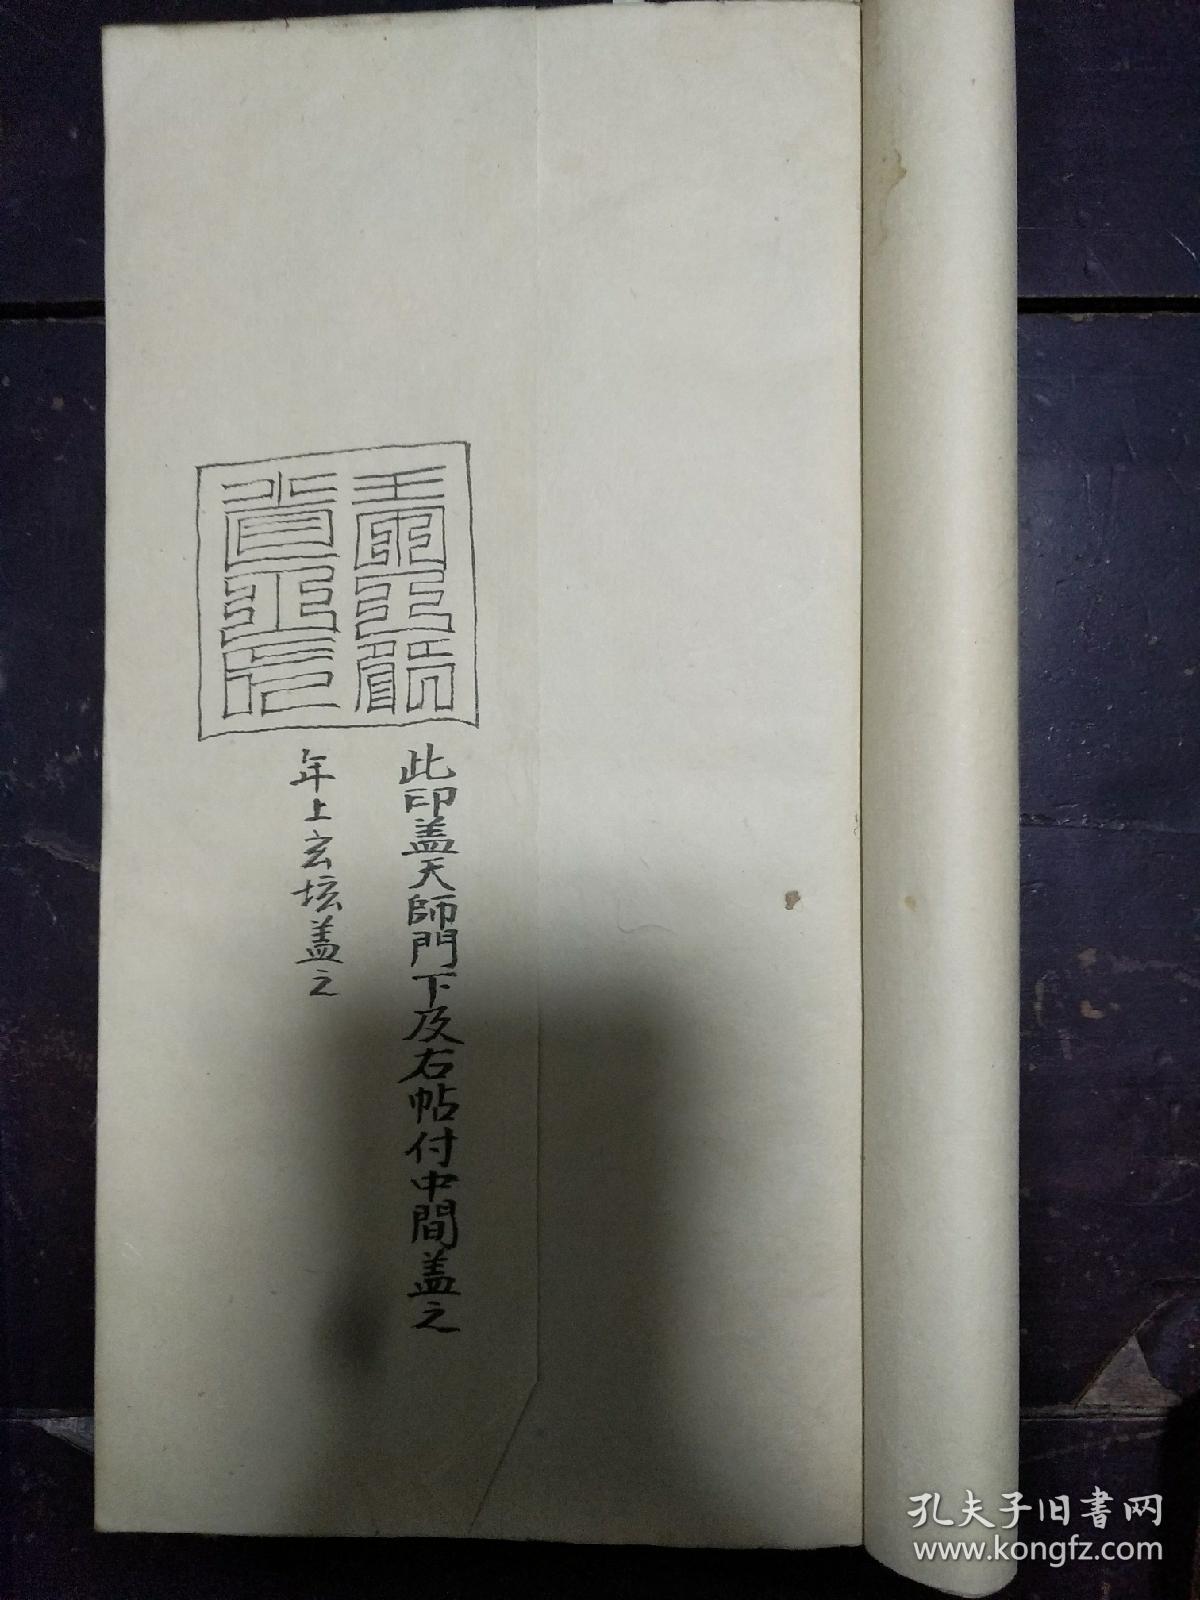 此印盖天師門下及右帖付中間盖之
年上玄坛盖之
孔夫子旧書网
www.kongfz.com